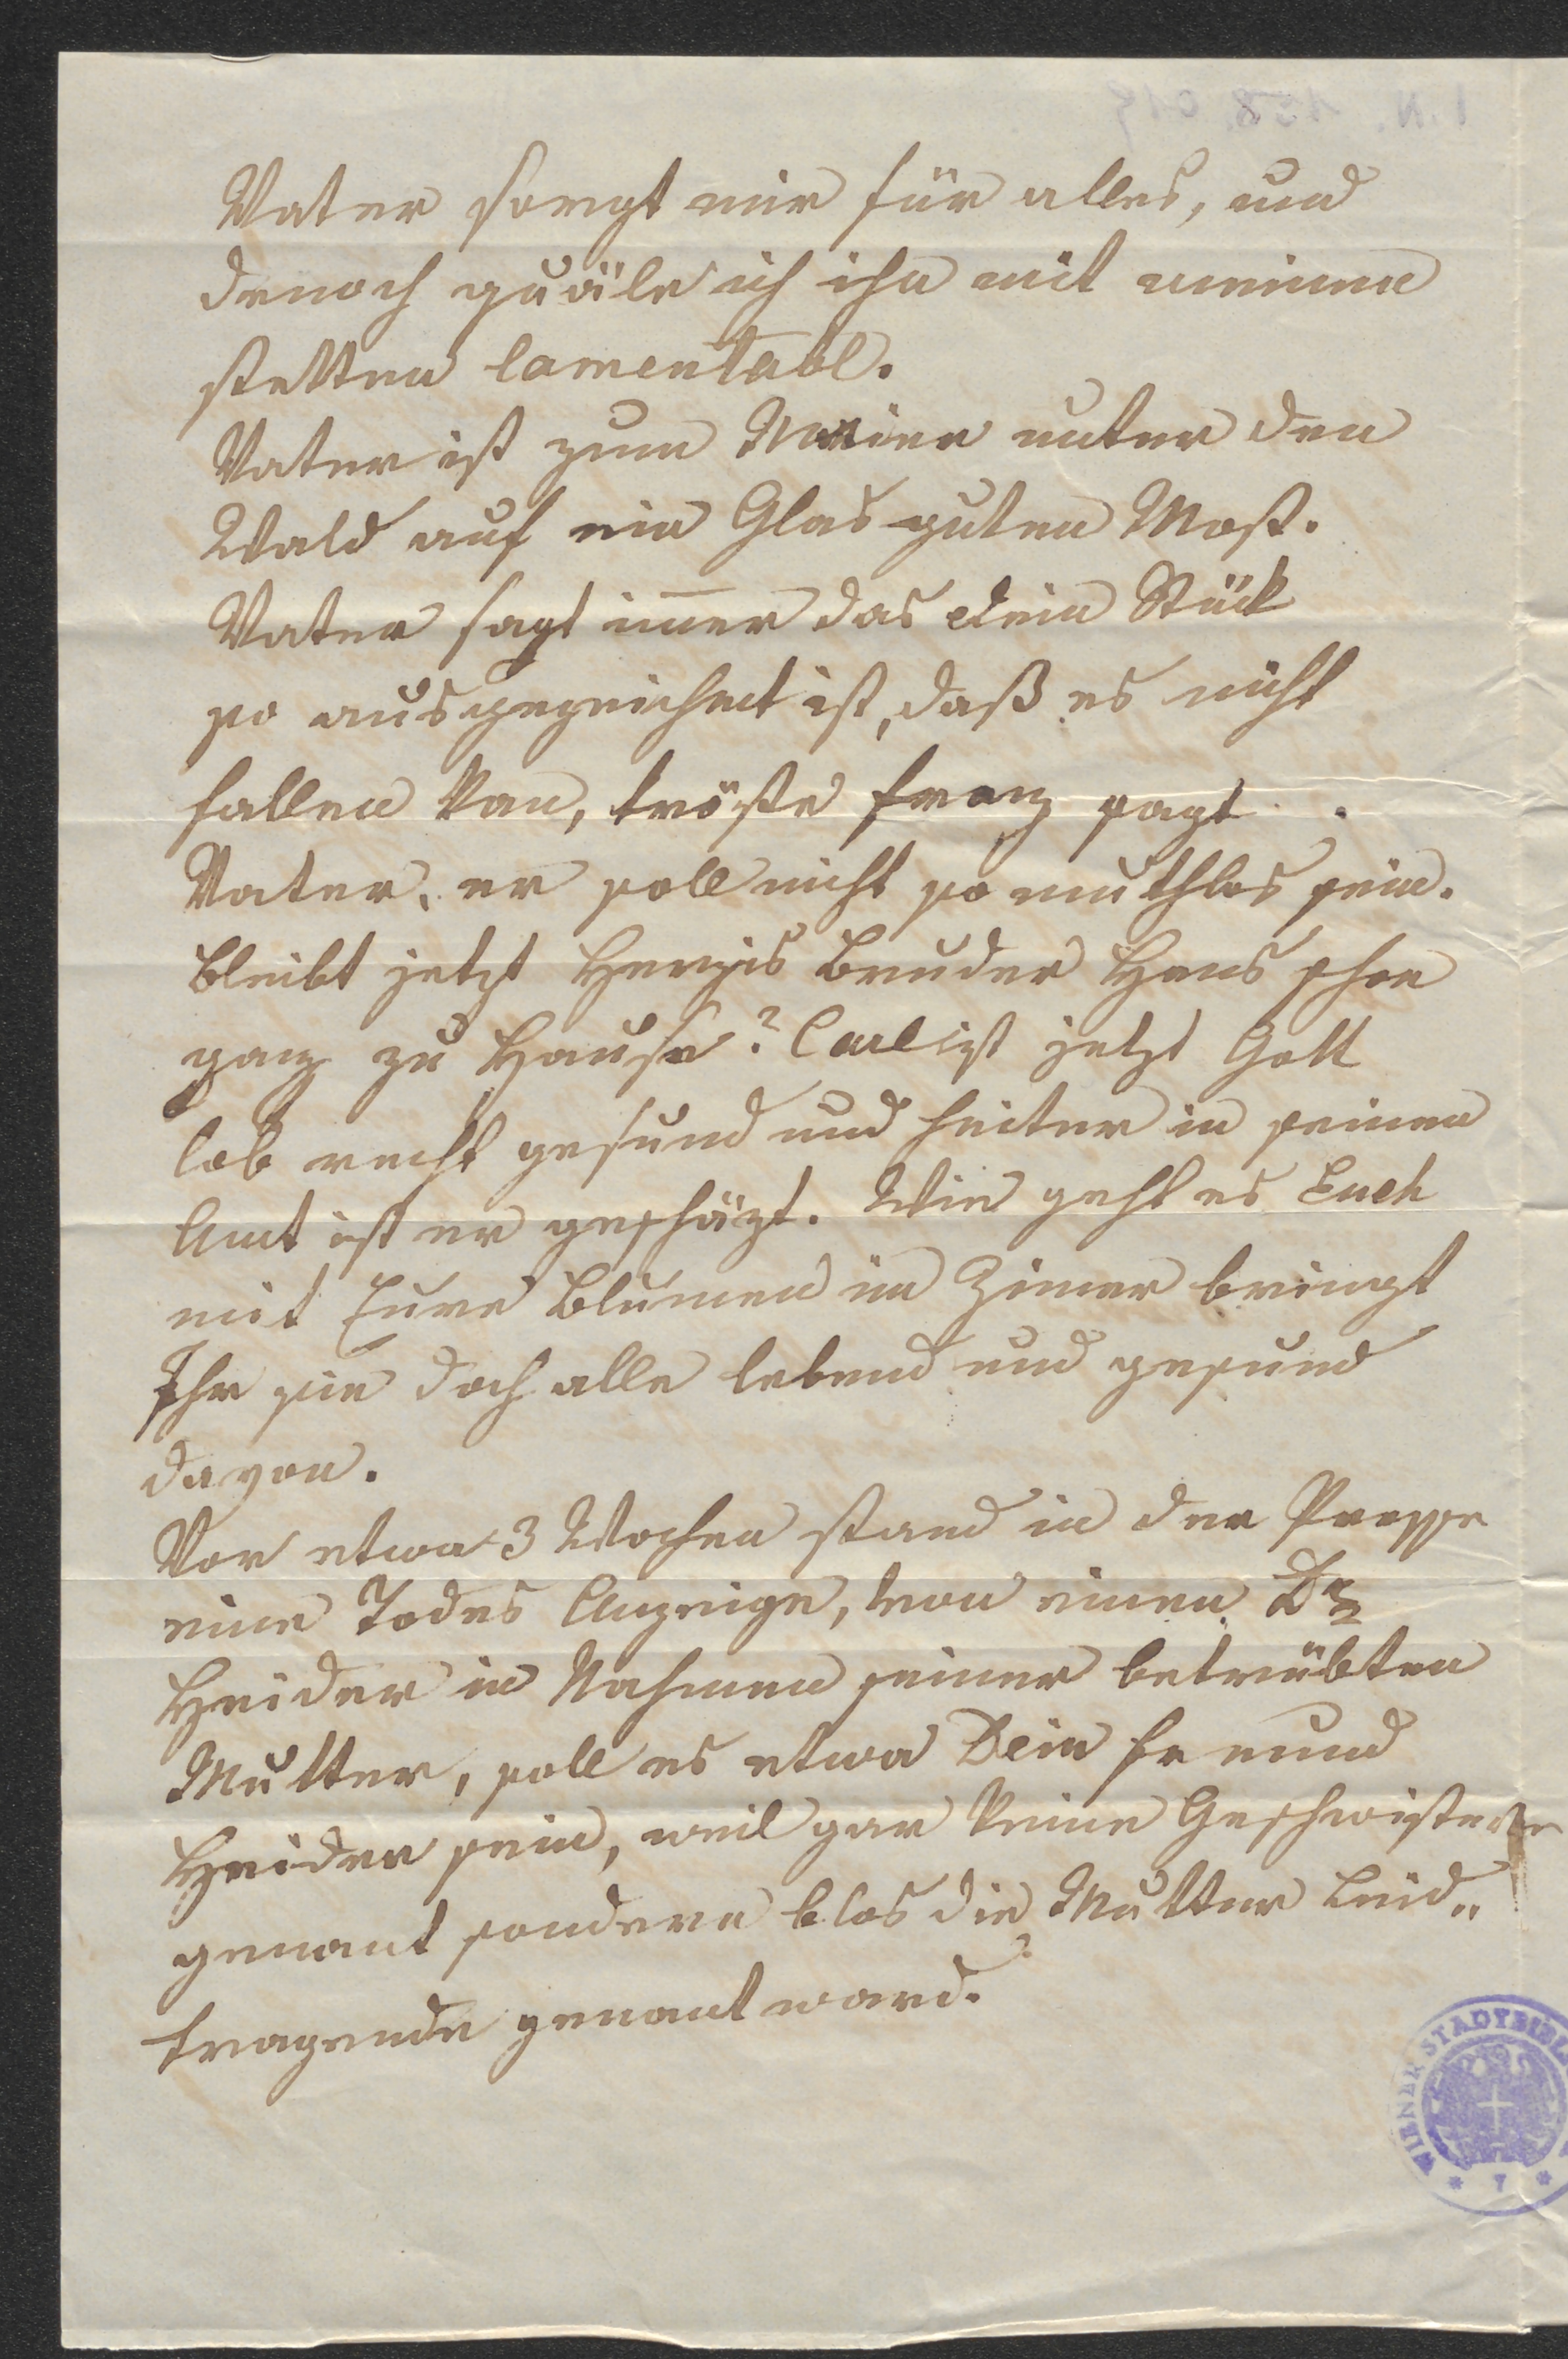 I.N. 158.019
Vater sorgt mir für alles, und
denoch quäle ich ihn mit meinen
stetten lamentabl.
Vater ist zum Maxien unter den
Wald auf ein Glas guten Most.
Vater sagt im̄er das dein Stück
so ausgezeichnet ist, daß es nicht
fallen kan, tröste franz sagt
Vater, er soll nicht so muthlos sein.
Bleibt jetzt Bruder Hans schon
ganz zu Hause? Carl ist jetzt Gott
lob recht gesund und heiter in seinen
Amt ist er geschäzt. Wie geht es Euch
mit Eure Blumen im Zimer bringt
Ihr sie doch alle lebend und gesund
davon.
Vor etwa 3 Wochen stand in der Presse
eine Todes Anzeige, von einen Dr
Heider in Nahmen seiner betrübten
Mutter, soll es etwa Dein freund
Heider sein, weil gar keine Geschwister
genant sondern blos die Mutter Leid„
tragende genant ward.
WIENER STADTBIBL
* 7 *